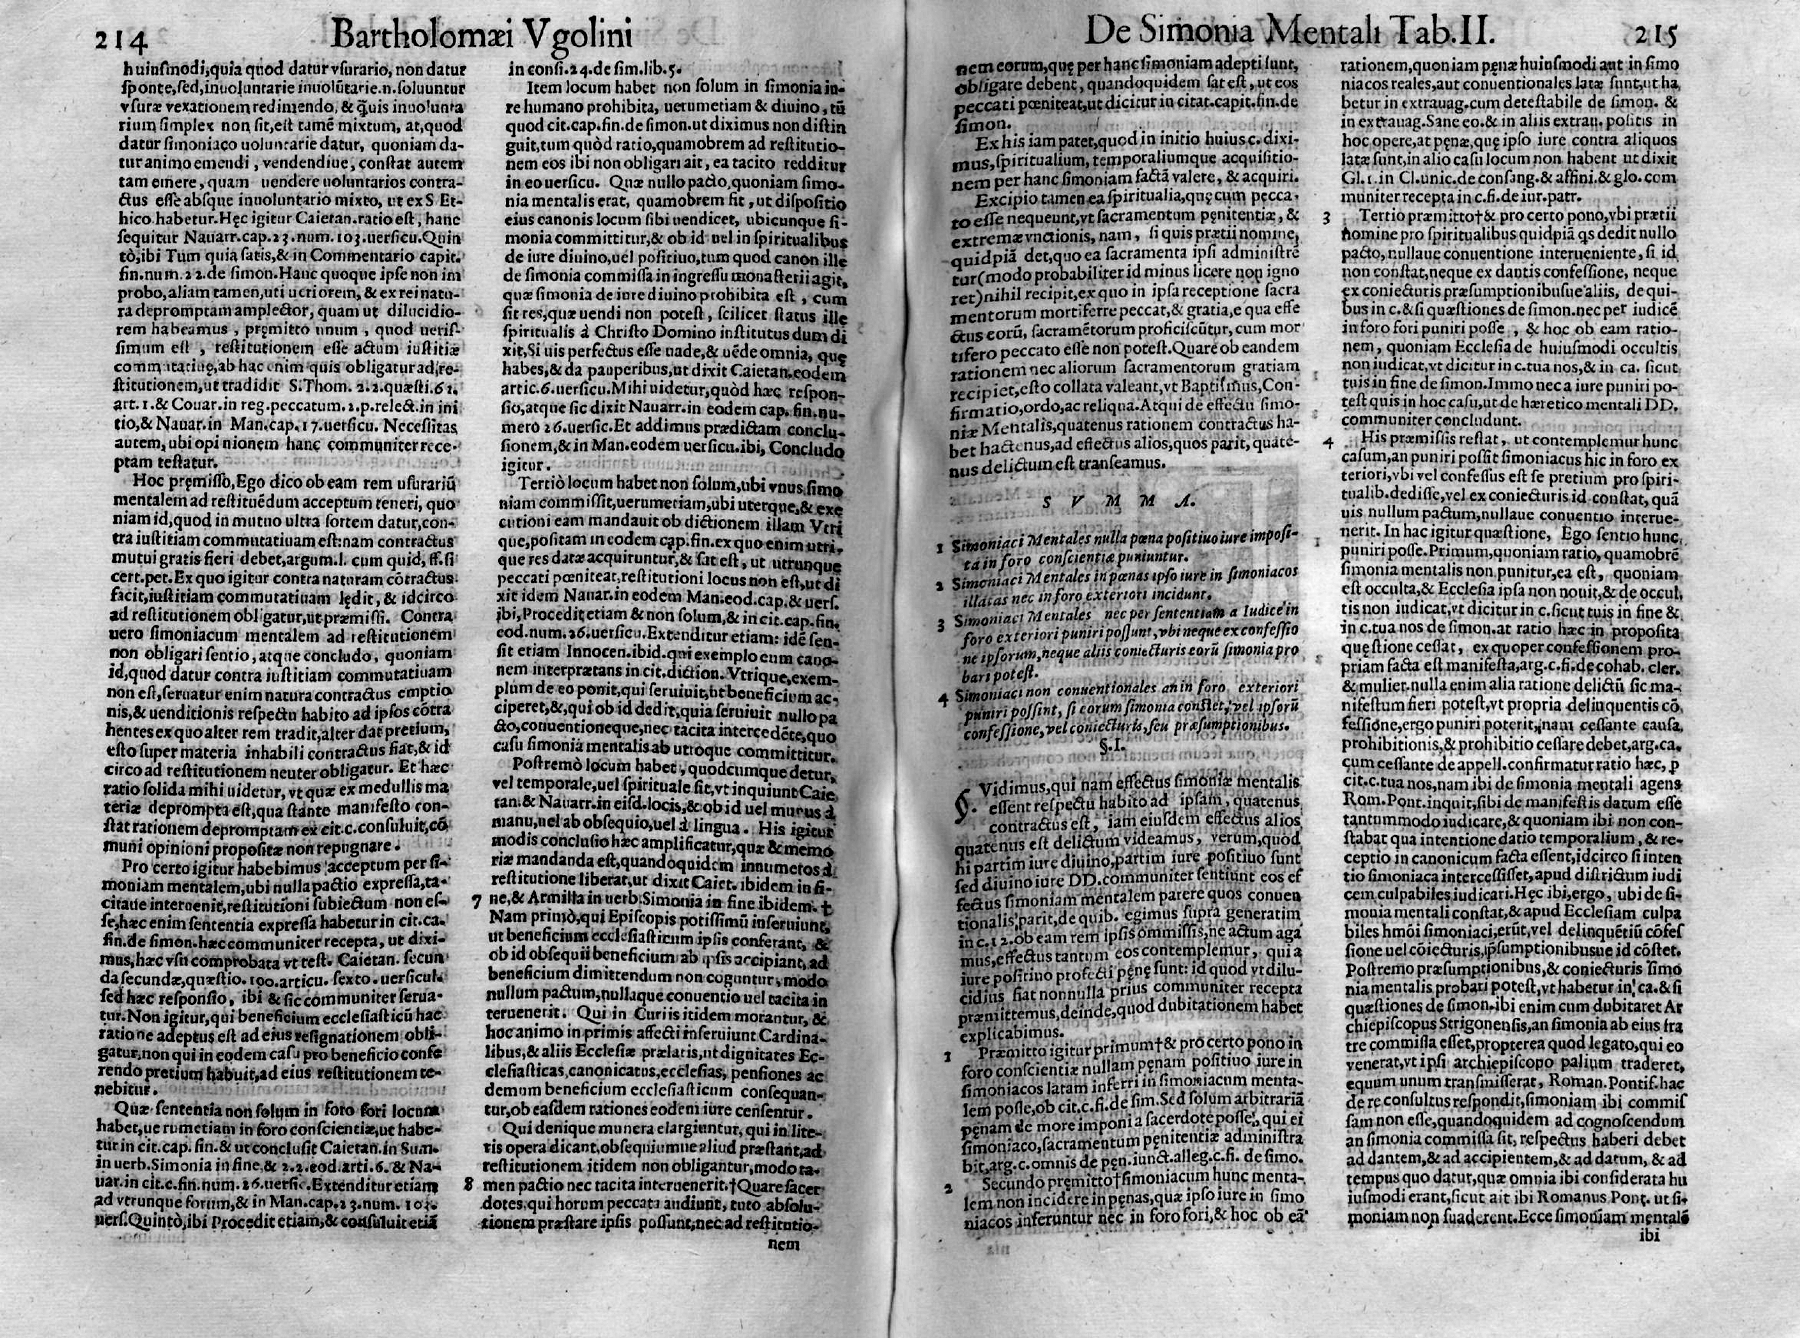 214 Bartholomæi Vgolini
huiusmodi, quia quod datur vsurario, non datur
sponte, sed, inuoluntarie inuolũtarie. n. soluuntur
vsuræ vexationem redimendo, & q̃uis inuolunta
rium simplex non sit, est tamẽ mixtum, at, quod
datur simoniaco uoluntarie datur, quoniam da-
tur animo emendi, vendendiue, constat autem
tam emere, quam uendere uoluntarios contra-
ctus esse absque inuoluntario mixto, ut ex S. Et-
hico habetur. Hęc igitur Caietan. ratio est, hanc
sequitur Nauarr. cap. 23. num. 103. uersicu. Quin
tò, ibi Tum quia satis, & in Commentario capit.
fin. num. 22. de simon. Hanc quoque ipse non im
probo, aliam tamen, uti ueriorem, & ex rei natu-
ra depromptam amplector, quam ut dilucidio-
rem habeamus, pręmitto unum, quod ueris-
simum est, restitutionem esse actum iustitiæ
commutatiuę, ab hac enim quis obligatur ad, re-
stitutionem, ut tradidit S. Thom. 2. 2. quæsti. 61.
art. 1. & Couar. in reg. peccatum. 2. p. relect. in ini
tio, & Nauar. in Man. cap. 17. uersicu. Necessitas
autem, ubi opinionem hanc communiter rece-
ptam testatur.
Hoc pręmisso, Ego dico ob eam rem usurariũ
mentalem ad restituẽdum acceptum teneri, quo
niam id, quod in mutuo ultra sortem datur, con-
tra iustitiam commutatiuam est: nam contractus
mutui gratis fieri debet, argum. l. cum quid, ff. si
cert. pet. Ex quo igitur contra naturam cõtractus
facit, iustitiam commutatiuam lędit, & idcirco
ad restitutionem obligatur, ut præmisi. Contra
uero simoniacum mentalem ad restitutionem
non obligari sentio, atque concludo, quoniam
id, quod datur contra iustitiam commutatiuam
non est, seruatur enim natura contractus emptio
nis, & uenditionis respectu habito ad ipsos cõtra
hentes ex quo alter rem tradit, alter dat pretium,
esto super materia inhabili contractus fiat, & id
circo ad restitutionem neuter obligatur. Et hæc
ratio solida mihi uidetur, vt quæ ex medullis ma
teriæ deprompta est, qua stante manifesto con-
stat rationem depromptam ex cit. c. consuluit, cõ
muni opinioni propositæ non repugnare.
Pro certo igitur habebimus acceptum per si-
moniam mentalem, ubi nulla pactio expressa, ta-
citaue interuenit, restitutioni subiectum non es-
se, hæc enim sententia expressa habetur in cit. ca.
fin. de simon. hæc communiter recepta, ut dixi-
mus, hæc vsu comprobata vt test. Caietan. secun
da secundæ, quæstio. 100. articu. sexto. uersicul.
sed hæc responsio, ibi & sic communiter serua-
tur. Non igitur, qui beneficium ecclesiasticũ hac
ratione adeptus est ad eius resignationem obli-
gatur, non qui in eodem casu pro beneficio confe
rendo pretium habuit, ad eius restitutionem te-
nebitur.
Quæ sententia non solum in foro fori locum
habet, uerumetiam in foro conscientiæ, ut habe-
tur in cit. cap. fin. & ut conclusit Caietan. in Sum.
in uerb. Simonia in fine, & 2. 2. eod. arti. 6. & Na-
uar. in cit. c. fin. num. 26. uersic. Extenditur etiam
ad vtrunque forum, & in Man. cap. 23. num. 103.
uers. Quintò, ibi Procedit etiam, & consuluit etiã
in consi. 24. de sim. lib. 5.
Item locum habet non solum in simonia iu-
re humano prohibita, uerumetiam & diuino, tũ
quod cit. cap. fin. de simon. ut diximus non distin
guit, tum quòd ratio, quamobrem ad restitutio-
nem eos ibi non obligari ait, ea tacito redditur
in eo uersicu. Quæ nullo pacto, quoniam simo-
nia mentalis erat, quamobrem fit, ut dispositio
eius canonis locum sibi uendicet, ubicunque si-
monia committitur, & ob id uel in spiritualibus
de iure diuino, uel positiuo, tum quod canon ille
de simonia commissa in ingressu monasterii agit,
quæ simonia de iure diuino prohibita est, cum
sit res, quæ uendi non potest, scilicet status ille
spiritualis à Christo Domino institutus dum di
xit, Si uis perfectus esse uade, & uẽde omnia, quę
habes, & da pauperibus, ut dixit Caietan. eodem
artic. 6. uersicu. Mihi uidetur, quòd hæc respon-
sio, atque sic dixit Nauarr. in eodem cap. fin. nu-
mero 26. uersic. Et addimus prædictam conclu-
sionem, & in Man. eodem uersicu. ibi, Concludo
igitur.
Tertiò locum habet non solum, ubi vnus simo
niam commissit, uerumetiam, ubi uterque, & exe
cutioni eam mandauit ob dictionem illam Vtri
que, positam in eodem cap. fin. ex quo enim utri-
que res datæ acquiruntur, & sat est, ut utrunque
peccati pœniteat, restitutioni locus non est, ut di
xit idem Nauar. in eodem Man. eod. cap. & uers.
ibi, Procedit etiam & non solum, & in cit. cap. fin.
eod. num. 26. uersicu. Extenditur etiam: idẽ sen-
sit etiam Innocen. ibid. qui exemplo eum cano-
nem interprætans in cit. diction. Vtrique, exem-
plum de eo ponit, qui seruiuit, ut beneficium ac-
ciperet, &, qui ob id dedit, quia seruiuit nullo pa
cto, conuentioneque, nec tacita intercedẽte, quo
casu simonia mentalis ab utroque committitur.
Postremò locum habet, quodcumque detur,
vel temporale, uel spirituale sit, vt inquiunt Caie
tan. & Nauarr. in eisd. locis, & ob id uel munus à
manu, uel ab obsequio, uel à lingua. His igitur
modis conclusio hæc amplificatur, quæ & memo
riæ mandanda est, quandoquidem innumeros à
restitutione liberat, ut dixit Caiet. ibidem in fi-
7 ne, & Armilla in uerb. Simonia in fine ibidem. †
Nam primò, qui Episcopis potissimũ inseruiunt,
ut beneficium ecclesiasticum ipsis conferant, &
ob id obsequii beneficium ab ipsis accipiant, ad
beneficium dimittendum non coguntur, modo
nullum pactum, nullaque conuentio uel tacita in
teruenerit. Qui in Curiis itidem morantur, &
hoc animo in primis affecti inseruiunt Cardina-
libus, & aliis Ecclesiæ prælatis, ut dignitates Ec-
clesiasticas, canonicatus, ecclesias, pensiones ac
demum beneficium ecclesiasticum consequan-
tur, ob easdem rationes eodem iure censentur.
Qui denique munera elargiuntur, qui in lite-
ris opera dicant, obsequiumue aliud præstant, ad
restitutionem itidem non obligantur, modo ta-
8 men pactio nec tacita interuenerit. † Quare sacer
dotes, qui horum peccata audiunt, tuto absolu-
tionem præstare ipsis possunt, nec ad restitutio-
nem
De Simonia Mentali Tab. II. 215
nem eorum, quę per hanc simoniam adepti sunt,
obligare debent, quandoquidem sat est, ut eos
peccati pœniteat, ut dicitur in citat. capit. fin. de
simon.
Ex his iam patet, quod in initio huius c. dixi-
mus, spiritualium, temporaliumque acquisitio-
nem per hanc simoniam factã valere, & acquiri.
Excipio tamen ea spiritualia, quę cum pecca-
to esse nequeunt, vt sacramentum pęnitentiæ, &
extremæ vnctionis, nam, si quis prætii nomine,
quidpiã det, quo ea sacramenta ipsi administrẽ
tur (modo probabiliter id minus licere non igno
ret) nihil recipit, ex quo in ipsa receptione sacra
mentorum mortiferre peccat, & gratia, e qua effe
ctus eorũ, sacramẽtorum proficiscũtur, cum mor
tifero peccato esse non potest. Quare ob eandem
rationem nec aliorum sacramentorum gratiam
recipiet, esto collata valeant, vt Baptismus, Con-
firmatio, ordo, ac reliqua. Atqui de effectu simo-
niæ Mentalis, quatenus rationem contractus ha-
bet hactenus, ad effectus alios, quos parit, quate-
nus delictum est transeamus.
S V M M A.
1 Simoniaci Mentales nulla pœna positiuo iure imposi-
ta in foro conscientiæ puniuntur.
2 Simoniaci Mentales in pœnas ipso iure in simoniacos
illatas nec in foro exteriori incidunt.
3 Simoniaci Mentales nec per sententiam a Iudice in
foro exteriori puniri possunt, vbi neque ex confessio
ne ipsorum, neque aliis coniecturis eorũ simonia pro
bari potest.
4 Simoniaci non conuentionales an in foro exteriori
puniri possint, si eorum simonia constet, vel ipsorũ
confessione, vel coniecturis, seu præsumptionibus.
§. I.
§. Vidimus, qui nam effectus simoniæ mentalis
essent respectu habito ad ipsam, quatenus
contractus est, iam eiusdem effectus alios
quatenus est delictum videamus, verum, quod
hi partim iure diuino, partim iure positiuo sunt
sed diuino iure DD. communiter sentiunt eos ef
fectus simoniam mentalem parere quos conuen
tionalis parit, de quib. egimus supra generatim
in c. 12. ob eam rem ipsis ommissis, ne actum aga
mus, effectus tantum eos contemplemur, qui a
iure positiuo profecti pęnę sunt: id quod vt dilu-
cidius fiat nonnulla prius communiter recepta
præmittemus, deinde, quod dubitationem habet
explicabimus.
1 Præmitto igitur primum † & pro certo pono in
foro conscientiæ nullam pęnam positiuo iure in
simoniacos latam inferri in simoniacum menta-
lem posse, ob cit. c. fi. de sim. Sed solum arbitrariã
pęnam de more imponi a sacerdote posse, qui ei
simoniaco, sacramentum pęnitentiæ administra
bit, arg. c. omnis de pęn. iunct. alleg. c. fi. de simo.
2 Secundo pręmitto † simoniacum hunc menta-
lem non incidere in pęnas, quæ ipso iure in simo
niacos inferuntur nec in foro fori, & hoc ob eã
rationem, quoniam pęnæ huiusmodi aut in simo
niacos reales, aut conuentionales latæ sunt, ut ha
betur in extrauag. cum detestabile de simon. &
in extrauag. Sane eo. & in aliis extrau. positis in
hoc opere, at pęnæ, quę ipso iure contra aliquos
latæ sunt, in alio casu locum non habent ut dixit
Gl. 1. in Cl. unic. de consang. & affini. & glo. com
muniter recepta in c. fi. de iur. patr.
3 Tertio præmitto † & pro certo pono, vbi prætii
nomine pro spiritualibus quidpiã qs dedit nullo
pacto, nullaue conuentione interueniente, si id
non constat, neque ex dantis confessione, neque
ex coniecturis præsumptionibusue aliis, de qui-
bus in c. & si quæstiones de simon. nec per iudicẽ
in foro fori puniri posse, & hoc ob eam ratio-
nem, quoniam Ecclesia de huiusmodi occultis
non iudicat, vt dicitur in c. tua nos, & in ca. sicut
tuis in fine de simon. Immo nec a iure puniri po-
test quis in hoc casu, ut de hæretico mentali DD.
communiter concludunt.
4 His præmissis restat, ut contemplemur hunc
casum, an puniri possit simoniacus hic in foro ex
teriori, vbi vel confessus est se pretium pro spiri-
tualib. dedisse, vel ex coniecturis id constat, quã
uis nullum pactum, nullaue conuentio interue-
nerit. In hac igitur quæstione, Ego sentio hunc
puniri posse. Primum, quoniam ratio, quamobrẽ
simonia mentalis non punitur, ea est, quoniam
est occulta, & Ecclesia ipsa non nouit, & de occul
tis non iudicat, vt dicitur in c. sicut tuis in fine &
in c. tua nos de simon. at ratio hæc in proposita
quęstione cessat, ex quo per confessionem pro-
priam facta est manifesta, arg. c. fi. de cohab. cler.
& mulier. nulla enim alia ratione delictũ sic ma-
nifestum fieri potest, vt propria delinquentis cõ
fessione, ergo puniri poterit, nam cessante causa
prohibitionis, & prohibitio cessare debet, arg. ca.
cum cessante de appell. confirmatur ratio hæc, p
cit. c. tua nos, nam ibi de simonia mentali agens
Rom. Pont. inquit, sibi de manifestis datum esse
tantummodo iudicare, & quoniam ibi non con-
stabat qua intentione datio temporalium, & re-
ceptio in canonicum facta essent, idcirco si inten
tio simoniaca intercessisset, apud districtum iudi
cem culpabiles iudicari. Hęc ibi, ergo, ubi de si-
monia mentali constat, & apud Ecclesiam culpa
biles hmõi simoniaci, erũt, vel delinquẽtiũ cõfes
sione uel cõiecturis, psumptionibusue id cõstet.
Postremo præsumptionibus, & coniecturis simo
nia mentalis probari potest, vt habetur in ca. & si
quæstiones de simon. ibi enim cum dubitaret Ar
chiepiscopus Strigonensis, an simonia ab eius fra
tre commissa esset, propterea quod legato, qui eo
venerat, vt ipsi archiepiscopo palium traderet,
equum unum transmisserat, Roman. Pontif. hac
de re consultus respondit, simoniam ibi commis
sam non esse, quandoquidem ad cognoscendum
an simonia commissa sit, respectus haberi debet
ad dantem, & ad accipientem, & ad datum, & ad
tempus quo datur, quæ omnia ibi considerata hu
iusmodi erant, sicut ait ibi Romanus Pont. ut si-
moniam non suaderent. Ecce simoniam mentalẽ
ibi